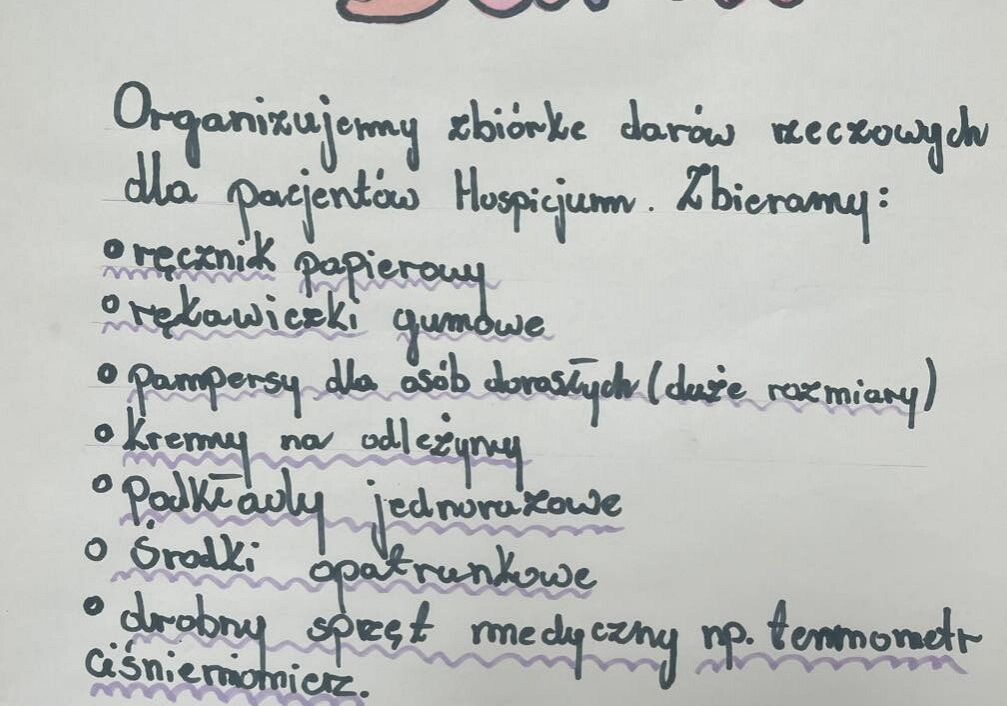 Organizujemy zbiórke darów rzeczowych
dla pacjentów Hospicjum. Zbieramy:
• ręcznik papierowy
• rękawiczki gumowe
• pampersy dla osób dorosłych (duże rozmiary)
• kremy na odleżyny
• Podkłady jednorazowe
• Środki opatrunkowe
• drobny sprzęt medyczny np. termometr
ciśnieniomierz.